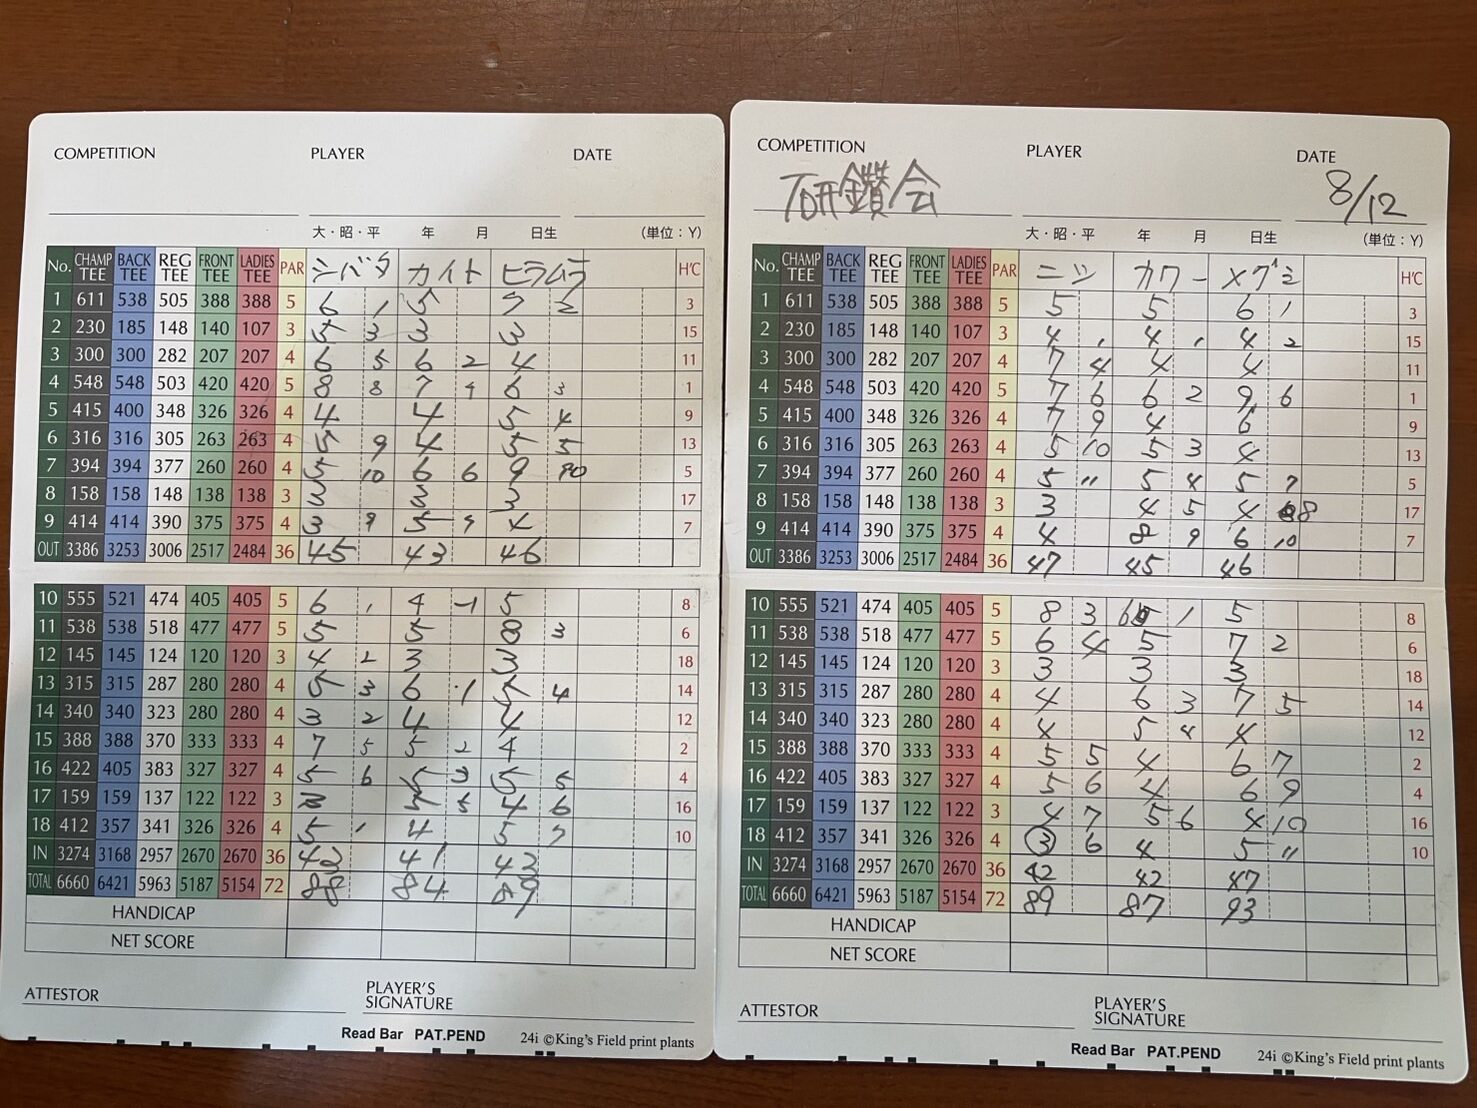 COMPETITION PLAYER DATE
大・昭・平 年 月 日生 (単位：Y)
No. CHAMP TEE BACK TEE REG TEE FRONT TEE LADIES TEE PAR シバタ カイト ヒラムラ H'C
1 611 538 505 388 388 5 6 1 5 7 2 3
2 230 185 148 140 107 3 5 3 3 3 15
3 300 300 282 207 207 4 6 5 6 2 4 11
4 548 548 503 420 420 5 8 8 7 4 6 3 1
5 415 400 348 326 326 4 4 4 5 4 9
6 316 316 305 263 263 4 5 9 4 5 5 13
7 394 394 377 260 260 4 5 10 6 6 9 10 5
8 158 158 148 138 138 3 3 3 3 17
9 414 414 390 375 375 4 3 9 5 7 4 7
OUT 3386 3253 3006 2517 2484 36 45 43 46
10 555 521 474 405 405 5 6 1 4 -1 5 8
11 538 538 518 477 477 5 5 5 8 3 6
12 145 145 124 120 120 3 4 2 3 3 18
13 315 315 287 280 280 4 5 3 6 1 5 4 14
14 340 340 323 280 280 4 3 2 4 4 12
15 388 388 370 333 333 4 7 5 5 2 4 2
16 422 405 383 327 327 4 5 6 5 3 5 5 4
17 159 159 137 122 122 3 3 5 5 4 6 16
18 412 357 341 326 326 4 5 1 4 5 7 10
IN 3274 3168 2957 2670 2670 36 43 41 43
TOTAL 6660 6421 5963 5187 5154 72 88 84 89
HANDICAP
NET SCORE
ATTESTOR PLAYER'S SIGNATURE
Read Bar PAT.PEND 24i ©King's Field print plants
COMPETITION PLAYER DATE
研鑽会 8/12
大・昭・平 年 月 日生 (単位：Y)
No. CHAMP TEE BACK TEE REG TEE FRONT TEE LADIES TEE PAR ニツ カワー メグミ H'C
1 611 538 505 388 388 5 5 5 6 1 3
2 230 185 148 140 107 3 4 1 4 1 4 2 15
3 300 300 282 207 207 4 7 4 4 4 11
4 548 548 503 420 420 5 7 6 6 2 9 6 1
5 415 400 348 326 326 4 7 9 4 6 9
6 316 316 305 263 263 4 5 10 5 3 4 13
7 394 394 377 260 260 4 5 11 5 4 5 7 5
8 158 158 148 138 138 3 3 4 5 4 8 17
9 414 414 390 375 375 4 4 8 9 6 10 7
OUT 3386 3253 3006 2517 2484 36 47 45 46
10 555 521 474 405 405 5 8 3 6 1 5 8
11 538 538 518 477 477 5 6 4 5 7 2 6
12 145 145 124 120 120 3 3 3 3 18
13 315 315 287 280 280 4 4 6 3 7 5 14
14 340 340 323 280 280 4 4 5 4 4 12
15 388 388 370 333 333 4 5 5 4 6 7 2
16 422 405 383 327 327 4 5 6 4 6 9 4
17 159 159 137 122 122 3 4 7 5 6 4 10 16
18 412 357 341 326 326 4 3 6 4 5 11 10
IN 3274 3168 2957 2670 2670 36 42 42 47
TOTAL 6660 6421 5963 5187 5154 72 89 87 93
HANDICAP
NET SCORE
ATTESTOR PLAYER'S SIGNATURE
Read Bar PAT.PEND 24i ©King's Field print plants